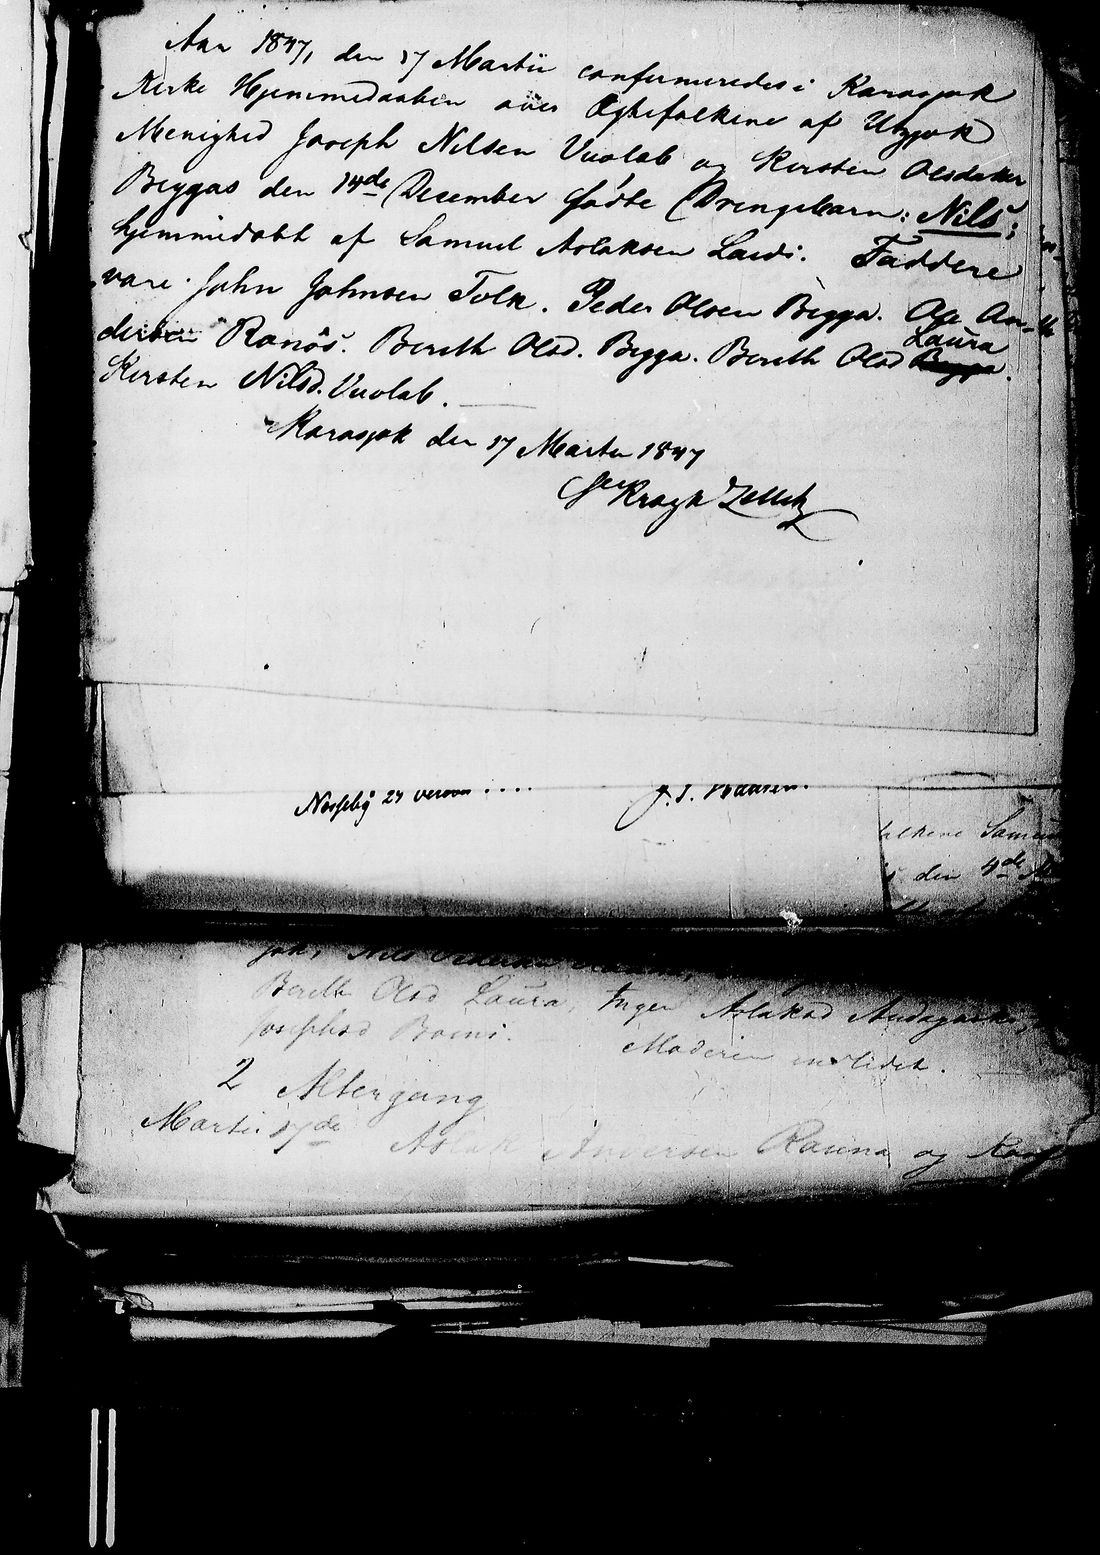 Aar 1847, den 17 Martii confirmeredes i Karasjok
Kirke Hjemmedaaben over Ægtefolkene af Utsjok
Menighed Joseph Nilsen Vuolab og Kirsten Olsdatter
Beggas den 14de December fødte Drengebarn: Nils;
hjemmedøbt af Samuel Aslaksen Laidi. Faddere
vare John Johnsen Tolk. Peder Olsen Begga. Ole An-
dersen Ranös. Bereth Olsd. Begga. Bereth Olsd Laura
Kirsten Nilsd. Vuolab.
Karasjok den 17 Martii 1847
Kragh Zetlitz
Nesseby 24
den 4de
Bereth Olsd Laura, Inger Aslaksd
Josephsd
Moderen indledet.
2 Altergang
Marti 17de Aslak Andersen Rauna og